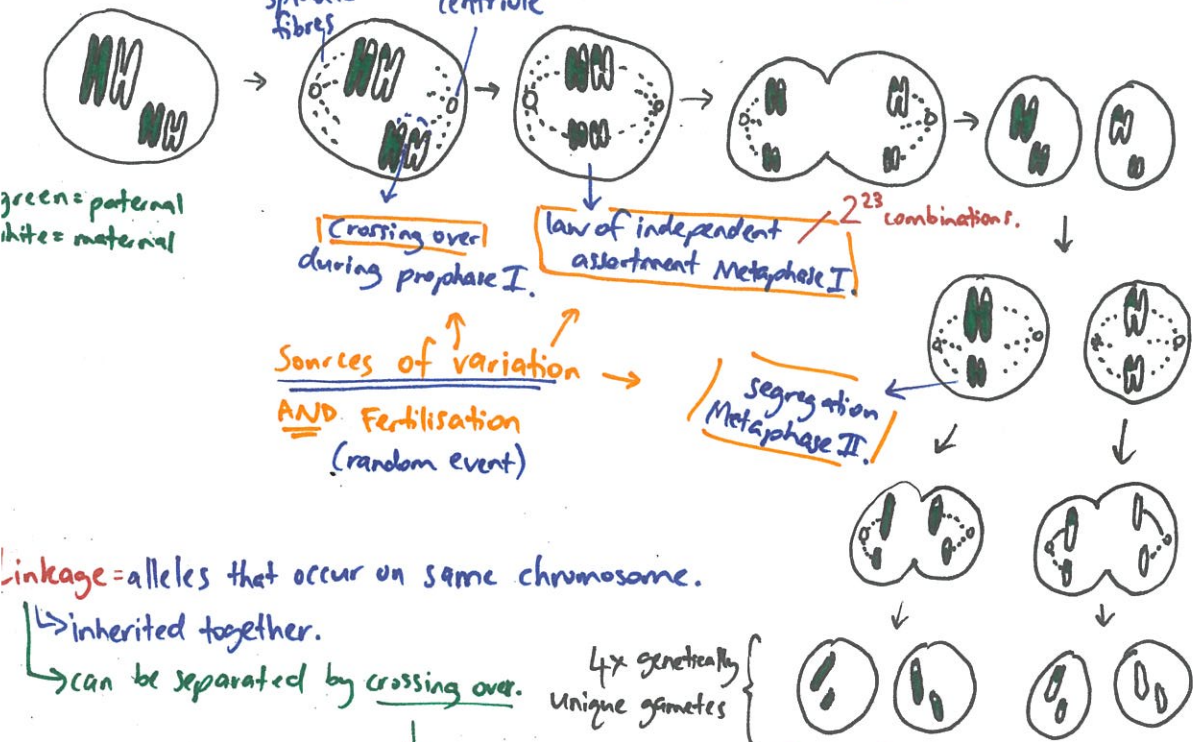 fibres
centriole
green = paternal
white = maternal
Crossing over
during prophase I.
law of independent
assortment Metaphase I.
2²³ combinations.
Sources of variation
AND Fertilisation
(random event)
segregation
Metaphase II.
Linkage = alleles that occur on same chromosome.
inherited together.
can be separated by crossing over.
4x genetically
unique gametes